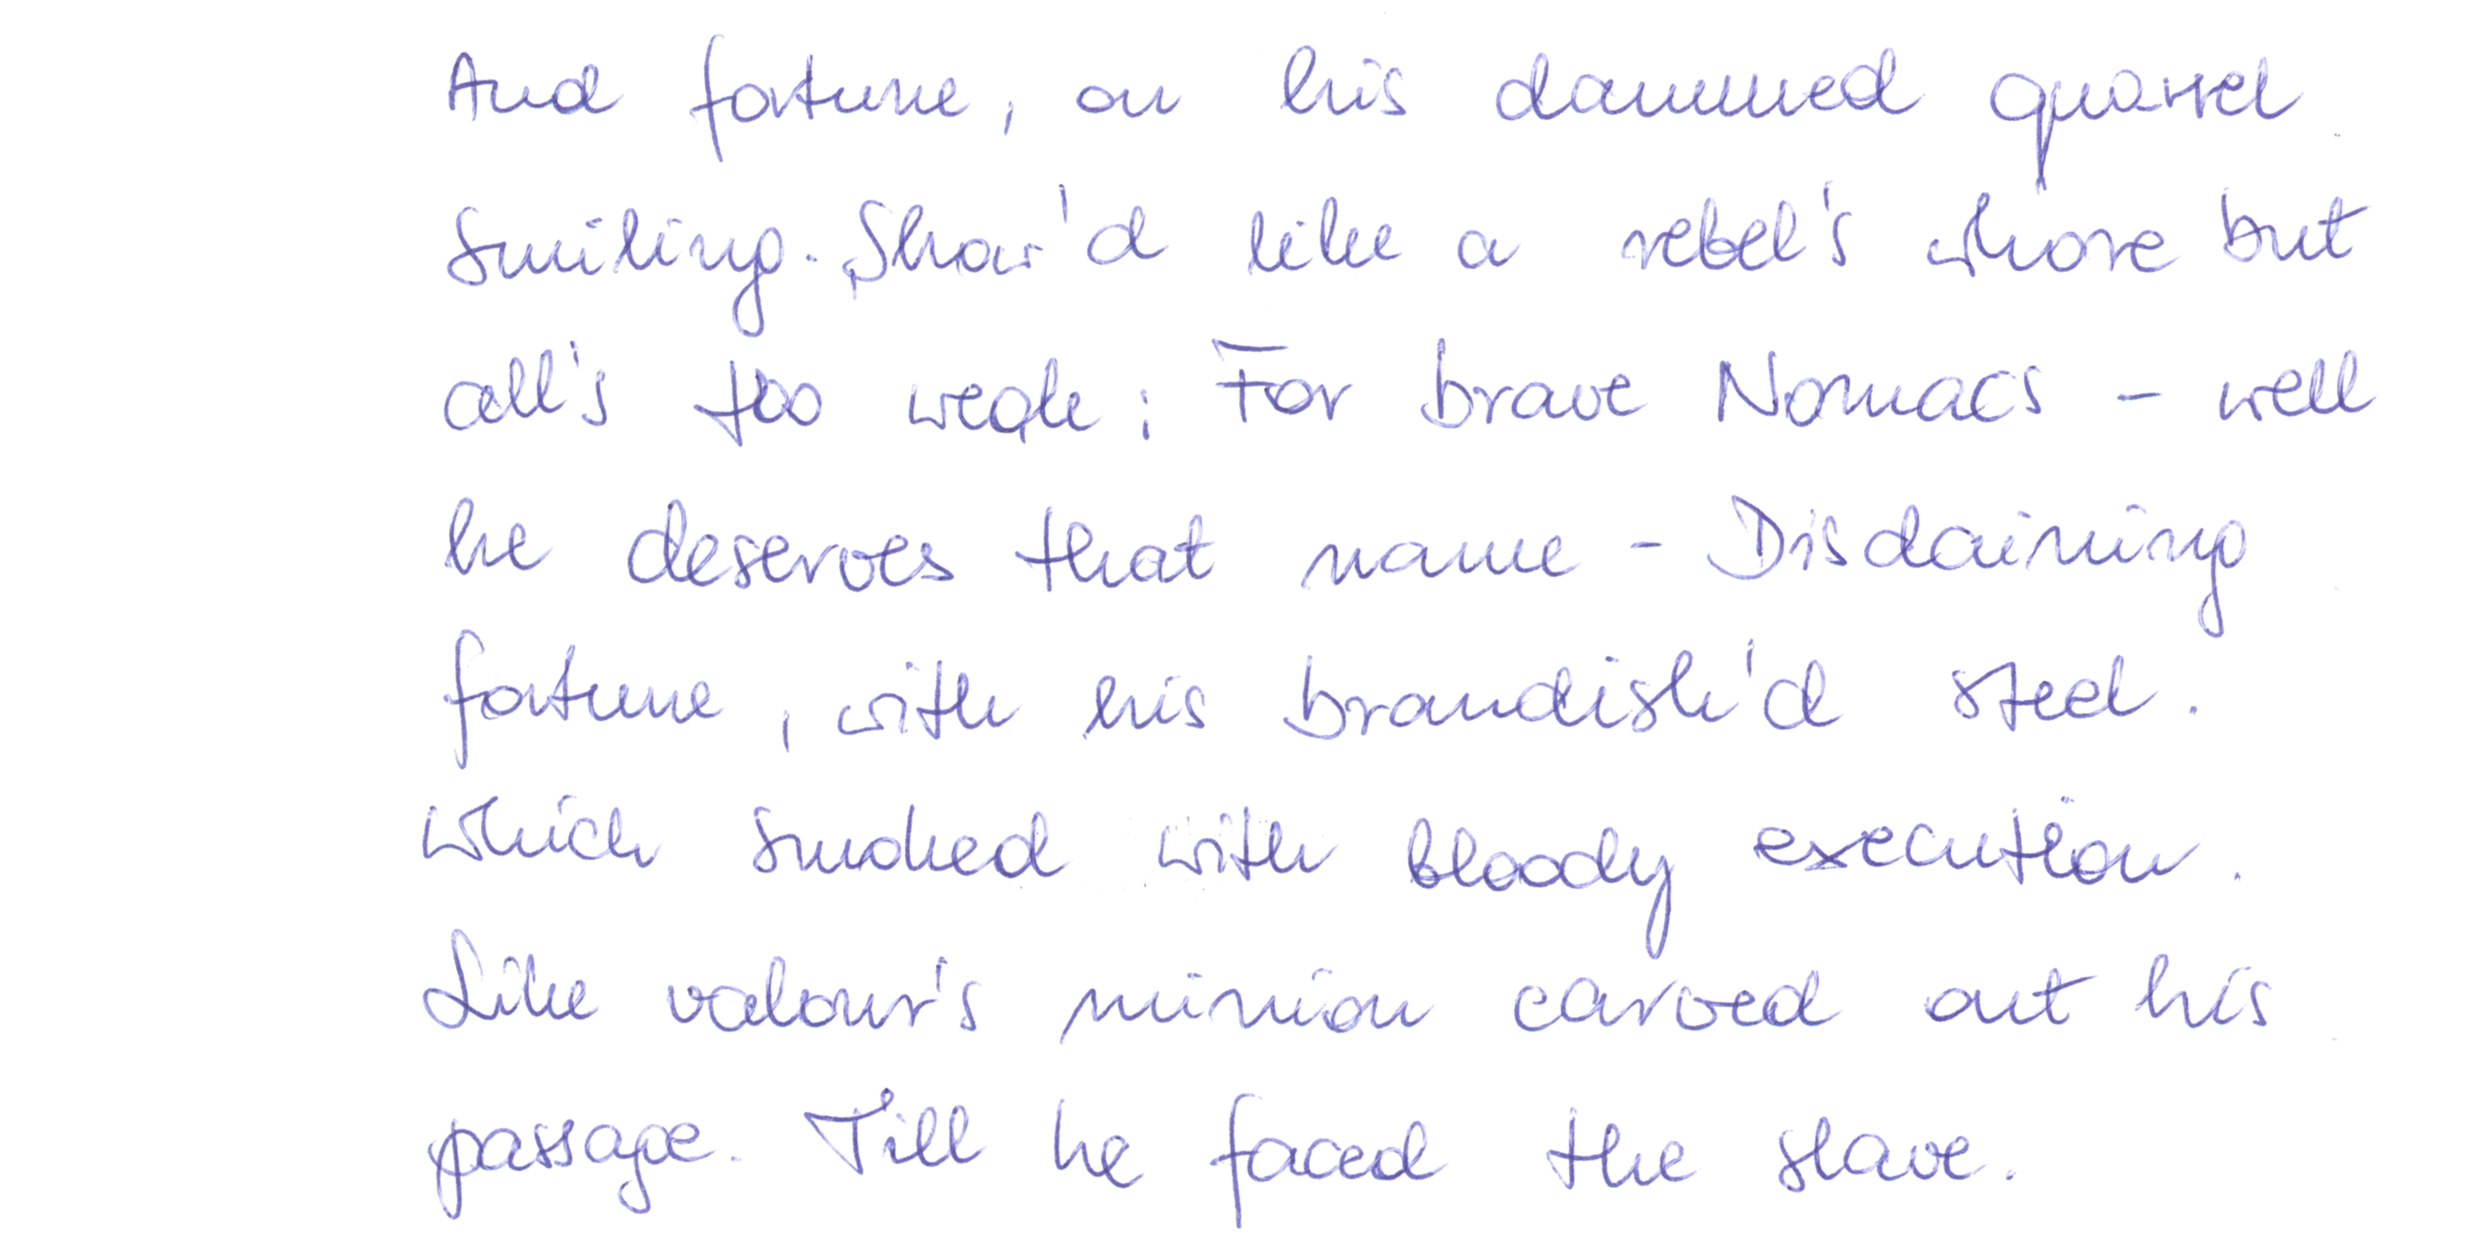 And fortune, on his dammed quarrel
Smiling. Show'd like a rebel's whore but
all's too weak; For brave Nomacs - well
he deserves that name - Disdaining
fortune, with his brandish'd steel.
which smoked with bloody execution.
Like valour's minion carved out his
passage. Till he faced the slave.